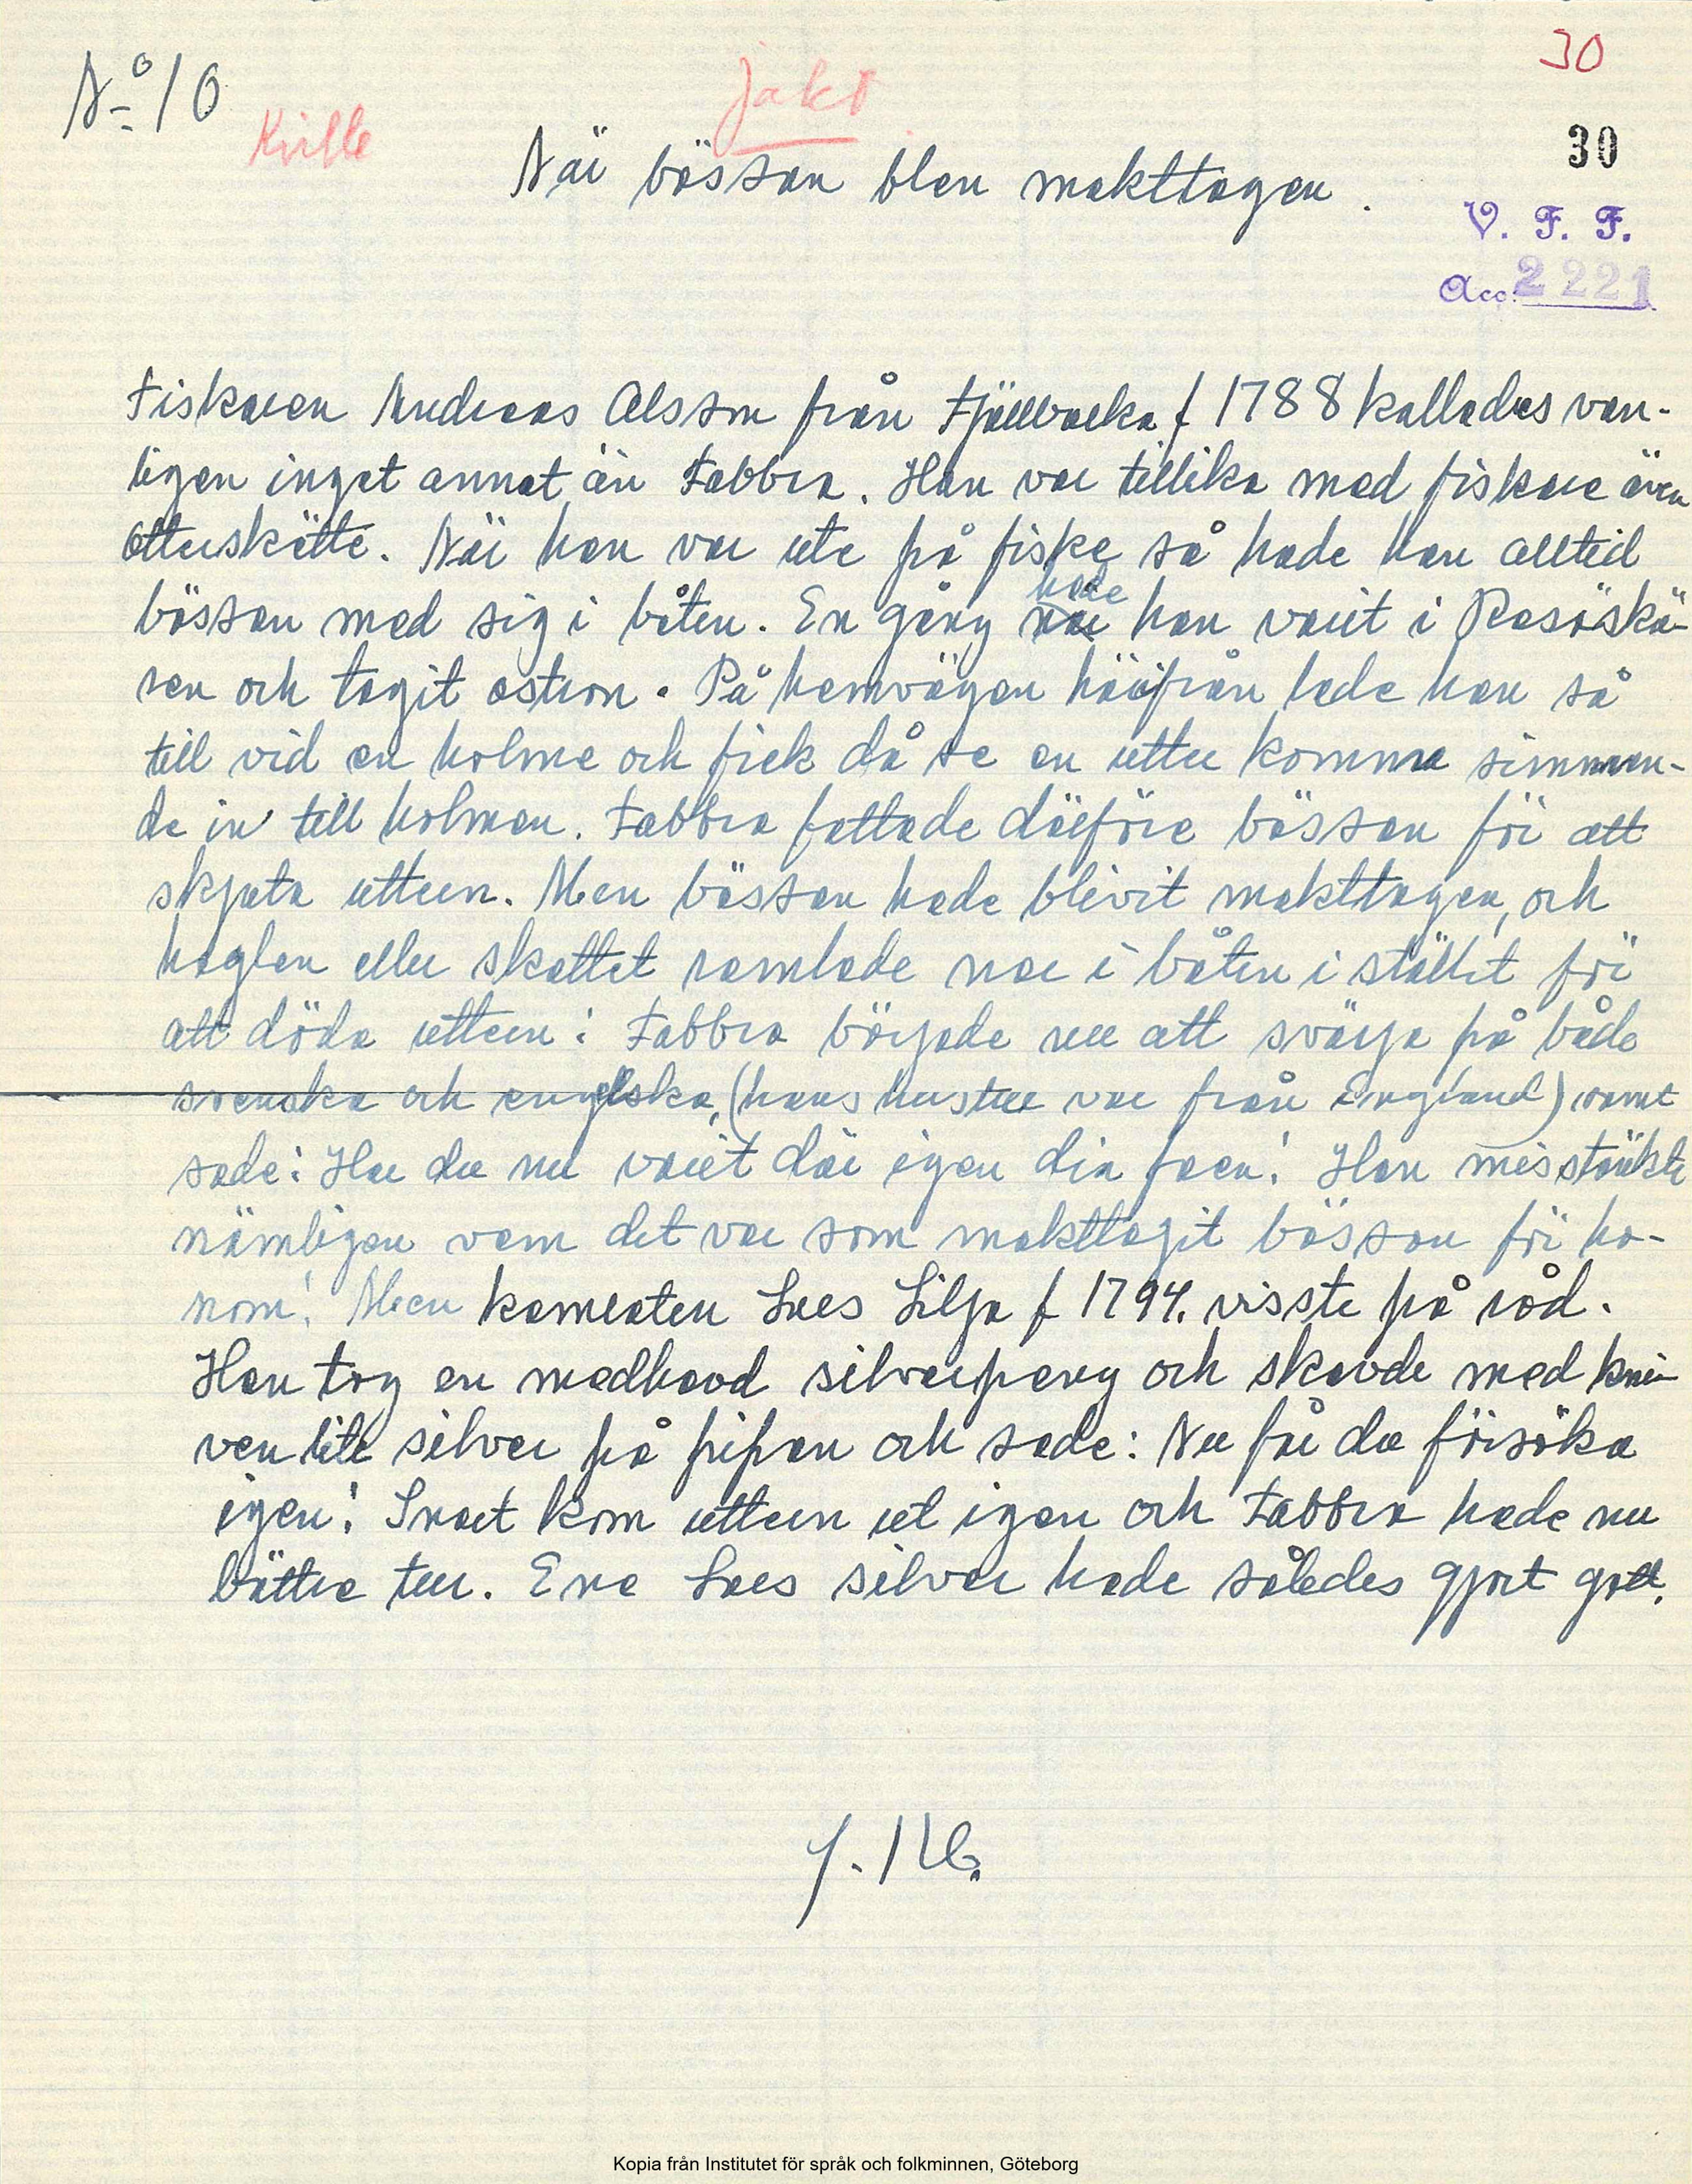 30
No 10
Jakt
Kville
30
När bössan blev makttagen.
V. F. F.
Acc. 2221
Fiskaren Andreas Olsson från Fjällbacka f 1788 kallades van-
ligen inget annat än Fabbra. Han var tillika med fiskare även
Otterskötte. När han var ute på fiske så hade han alltid
bössan med sig i båten. En gång hade han varit i Resöskä-
ren och tagit ostron. På hemvägen härifrån lade han så
till vid en holme och fick då se en utter komma simman-
de in till holmen. Fabbra fattade därföre bössan för att
skjuta uttern. Men bössan hade blivit makttagen, och
haglen eller skottet ramlade ner i båten i stället för
att döda uttern! Fabbra började nu att svärja på både
svenska och engelska, (hans hustru var från England) samt
sade: Har du nu varit där igen din faen! Han misstänkte
nämligen vem det var som makttagit bössan för ho-
nom! Men kamraten Lars Lilja f 1794. visste på råd.
Han tog en medhavd silverpeng och skavde med kni-
ven lite silver på pipan och sade: Nu får du försöka
igen! Snart kom uttern ut igen och Fabbra hade nu
bättre tur. Lars silver hade således gjort gott.
Kopia från Institutet för språk och folkminnen, Göteborg